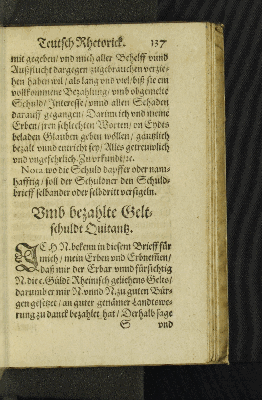 Teutsch Rhetorick. 137
mit gegeben/ vnd mich aller Behelff vnnd
Außflucht dargegen zugebrauchen verzie-
hen haben wil/ als lang vnd viel/ biß sie ein
vollkommene Bezahlung/ vmb obgemelte
Schuld/ Interesse/ vnnd allen Schaden
darauff gegangen/ Darum ich vnd meine
Erben/ jren schlechten Worten/ on Eydts
beladen Glauben geben wöllen/ gäntzlich
bezalt vnnd entricht sey/ Alles getreuwlich
vnd vngefehrlich. Zu vrkundt/ ꝛc.
Nota wo die Schuld dapffer oder nam-
hafftig/ soll der Schuldner den Schuld-
brieff selbander oder selbdritt versigeln.
Vmb bezahlte Gelt-
schuldt Quitantz.
ICH N. bekenn in diesem Brieff für
mich/ mein Erben vnd Erbnemen/
daß mir der Erbar vnnd fürsichtig
N. die c. Güldē Rheinisch geliehens Gelts/
darumb er mir N. vnnd N. zu guten Bür-
gen gesetzt/ an guter genämer Landtswe-
rung zu danck bezahlet hat/ Derhalb sage
S vnd